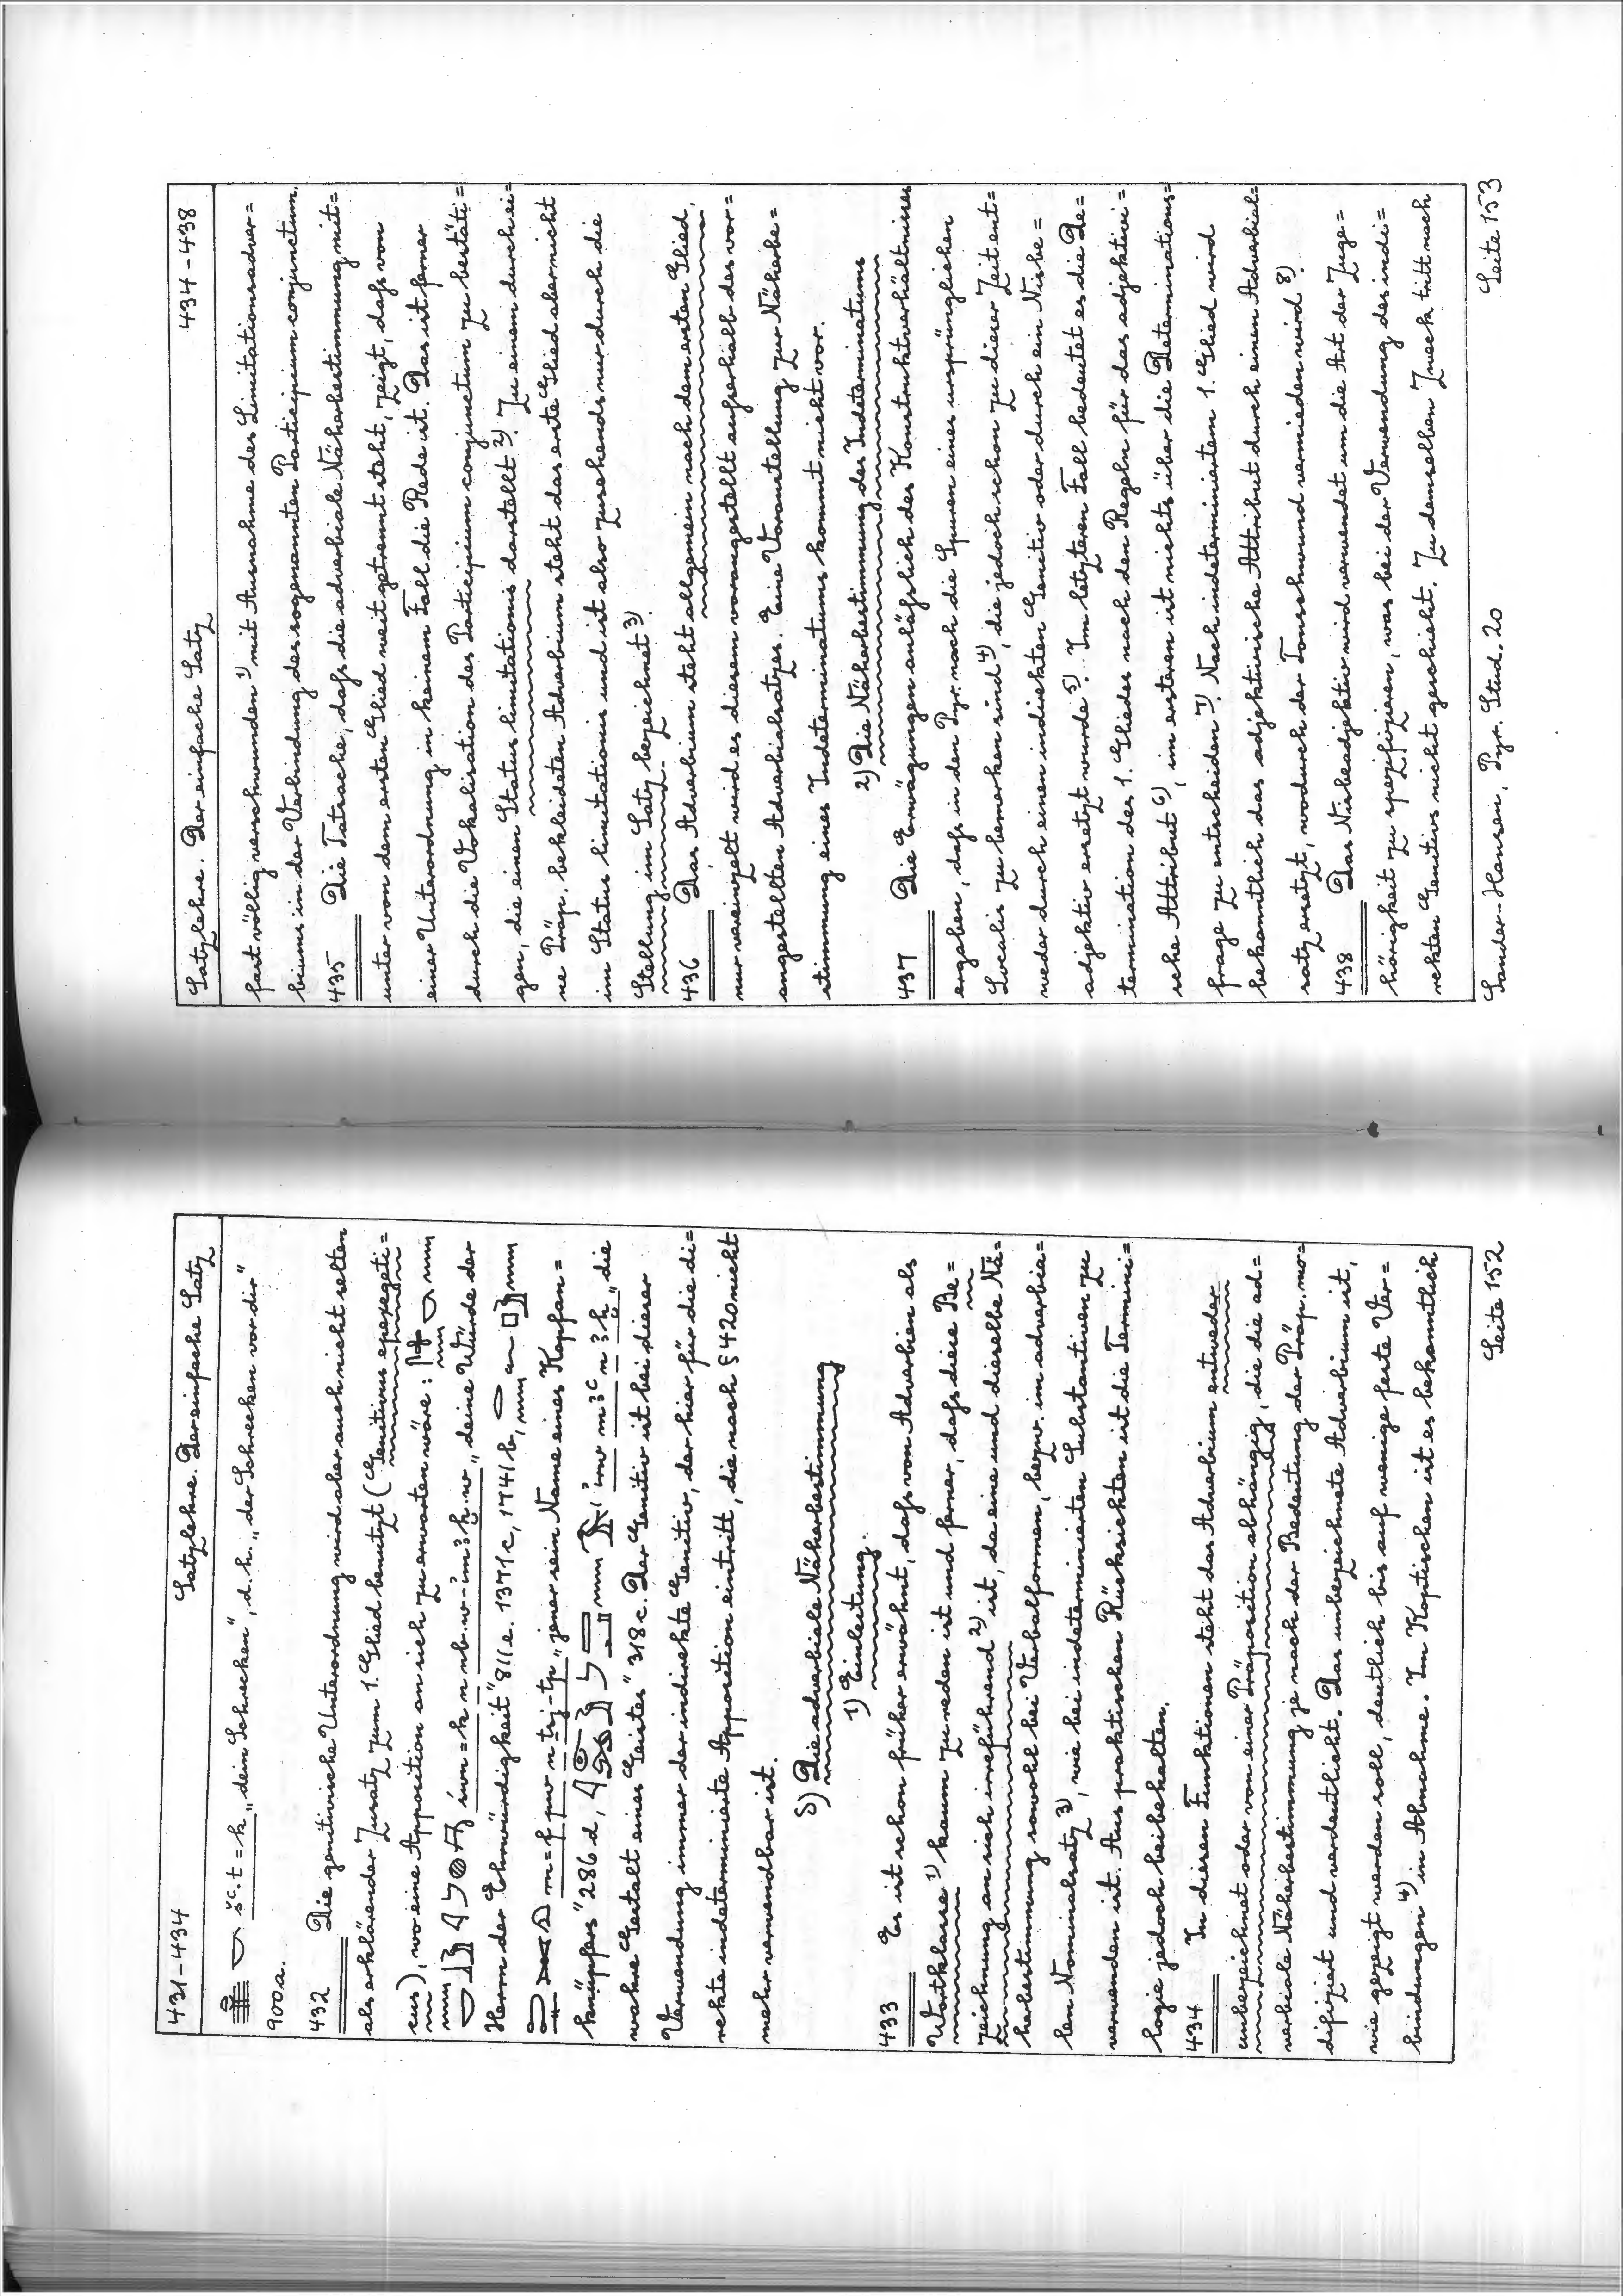 431-434 Satzlehre. Der einfache Satz
šꜥ.t=k „dein Schrecken“, d.h. „der Schrecken vor dir“
900a.
432 Die genitivische Unterordnung wird aber auch nicht selten
als erklärender Zusatz zum 1. Glied benutzt (Genitivus epexegeti=
cus), wo eine Apposition an sich zu erwarten wäre:
„deine Würde der
Herrn der Ehrwürdigkeit“ 811e. 1371c, 1741b,
m=f pw n tꜣj-tp „jener sein Name eines Kopfan=
knüpfers“ 286d, „die
wahre Gestalt eines Geistes“ 318c. Der Genitiv ist bei dieser
Verwendung immer der indirekte Genitiv, der hier für die di=
rekte indeterminierte Apposition eintritt, die nach § 420 nicht
mehr verwendbar ist.
δ) Die adverbiale Näherbestimmung
1) Einleitung.
433 Es ist schon früher erwähnt, dafs von Adverbien als
Wortklasse 1) kaum zu reden ist und ferner, dafs diese Be=
zeichnung an sich irreführend 2) ist, da eine und dieselbe Nä=
herbestimmung sowohl bei Verbalformen, bezw. im adverbia=
len Nominalsatz 3), wie bei indeterminierten Substantiven zu
verwenden ist. Aus praktischen Rücksichten ist die Termini=
logie jedoch beibehalten.
434 In diesen Funktionen steht das Adverbium entweder
unbezeichnet oder von einer Präposition abhängig, die die ad=
verbiale Näherbestimmung je nach der Bedeutung der Präp. mo=
difiziert und verdeutlicht. Das unbezeichnete Adverbium ist,
wie gezeigt werden soll, deutlich bis auf wenige feste Ver=
bindungen 4) in Abnahme. Im Koptischen ist es bekanntlich
Seite 152
Satzlehre. Der einfache Satz 434-438
fast völlig verschwunden 1) mit Ausnahme des Limitationsadver=
biums in der Verbindung des sogenannten Participium conjunctum.
435 Die Tatsache, dafs die adverbiale Näherbestimmung mit=
unter von dem ersten Glied weit getrennt steht, zeigt, dafs von
einer Unterordnung in keinem Fall die Rede ist. Das ist ferner
durch die Vokalisation des Participium conjunctum zu bestäti=
gen, die einen Status limitationis darstellt 2). Zu einem durch ei=
ne Präp. bekleideten Adverbium steht das erste Glied aber nicht
im Status limitationis und ist also zusehends nur durch die
Stellung im Satz bezeichnet 3).
436 Das Adverbium steht allgemein nach dem ersten Glied,
nur vereinzelt wird es diesem vorangestellt aufserhalb des vor=
angestellten Adverbialsatzes. Eine Voranstellung zur Näherbe=
stimmung eines Indeterminatums kommt nicht vor.
2) Die Näherbestimmung des Indeterminatums
437 Die Erwägungen anläfslich des Konstruktverhältnisses
ergaben, dafs in den Pyr. noch die Spuren eines ursprünglichen
Localis zu bemerken sind 4), die jedoch schon zu dieser Zeit ent=
weder durch einen indirekten Genitiv oder durch ein Nisbe=
adjektiv ersetzt wurde 5). Im letzteren Fall bedeutet es die De=
termination des 1. Gliedes nach den Regeln für das adjektivi=
sche Attribut 6), im ersteren ist nichts über die Determinations=
frage zu entscheiden 7). Nach indeterminiertem 1. Glied wird
bekanntlich das adjektivische Attribut durch einen Adverbial=
satz ersetzt, wodurch der Tonschwund vermieden wird 8).
438 Das Nisbeadjektiv wird verwendet um die Art der Zuge=
hörigkeit zu spezifizieren, was bei der Verwendung des indi=
rekten Genitivs nicht geschieht. Zu demselben Zweck tritt nach
Sander-Hansen, Pyr. Stud. 20 Seite 153